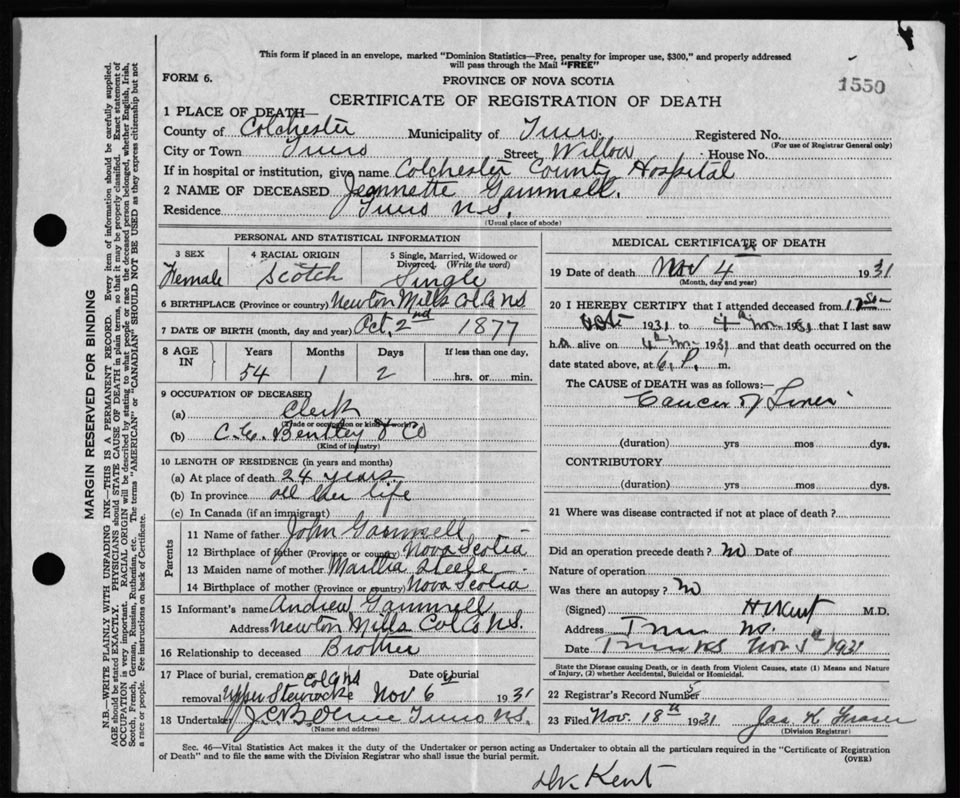 This form if placed in an envelope, marked "Dominion Statistics—Free, penalty for improper use, $300," and properly addressed
will pass through the Mail "FREE"
FORM 6.
PROVINCE OF NOVA SCOTIA
1550
CERTIFICATE OF REGISTRATION OF DEATH
1 PLACE OF DEATH—
County of Colchester Municipality of Truro. Registered No.
(For use of Registrar General only)
City or Town Truro Street Willow House No.
If in hospital or institution, give name Colchester County Hospital
2 NAME OF DECEASED Jeannette Gammell.
Residence Truro N.S.
(Usual place of abode)
PERSONAL AND STATISTICAL INFORMATION
3 SEX 4 RACIAL ORIGIN 5 Single, Married, Widowed or Divorced. (Write the word)
Female Scotch Single
6 BIRTHPLACE (Province or country) Newton Mills Col. Co NS
7 DATE OF BIRTH (month, day and year) Oct. 2nd 1877
8 AGE IN Years Months Days If less than one day,
54 1 2 hrs. or min.
9 OCCUPATION OF DECEASED
(a) Clerk
(Trade or occupation or kind of work)
(b) Bentley & Co
(Kind of industry)
10 LENGTH OF RESIDENCE (in years and months)
(a) At place of death 24 years
(b) In province all her life
(c) In Canada (if an immigrant)
Parents
11 Name of father John Gammell
12 Birthplace of father (Province or country) Nova Scotia
13 Maiden name of mother Martha Steele
14 Birthplace of mother (Province or country) Nova Scotia
15 Informant's name Andrew Gammell
Address Newton Mills Col. Co N.S.
16 Relationship to deceased Brother
17 Place of burial, cremation or Date of burial
removal Upper Stewiacke Nov 6th 1931
18 Undertaker Truro N.S.
(Name and address)
MEDICAL CERTIFICATE OF DEATH
19 Date of death Nov 4th 1931
(Month, day and year)
20 I HEREBY CERTIFY that I attended deceased from
Oct 1931 to 4th Nov 1931 that I last saw
h alive on 4th Nov 1931 and that death occurred on the
date stated above, at 6 P. m.
The CAUSE of DEATH was as follows:—
Cancer of Liver
(duration) yrs mos dys.
CONTRIBUTORY
(duration) yrs mos dys.
21 Where was disease contracted if not at place of death?
Did an operation precede death? no Date of
Nature of operation
Was there an autopsy? no
(Signed) Kent M.D.
Address Truro NS.
Date Truro NS Nov 5th 1931
State the Disease causing Death, or in death from Violent Causes, state (1) Means and Nature of Injury, (2) whether Accidental, Suicidal or Homicidal.
22 Registrar's Record Number 5
23 Filed Nov. 18th 1931 Jas. K Fraser
(Division Registrar)
Sec. 46—Vital Statistics Act makes it the duty of the Undertaker or person acting as Undertaker to obtain all the particulars required in the "Certificate of Registration
of Death" and to file the same with the Division Registrar who shall issue the burial permit.
(OVER)
Dr. Kent
MARGIN RESERVED FOR BINDING
N.B.—WRITE PLAINLY WITH UNFADING INK—THIS IS A PERMANENT RECORD. Every item of information should be carefully supplied.
AGE should be stated EXACTLY. PHYSICIANS should STATE CAUSE OF DEATH in plain terms, so that it may be properly classified. Exact statement of
OCCUPATION is very important. RACIAL ORIGIN will be described by stating to what people or race the deceased person belonged, whether English, Irish,
Scotch, French, German, Russian, Ruthenian, etc. The terms "AMERICAN" or "CANADIAN" SHOULD NOT BE USED as they express citizenship but not
a race or people. See instructions on back of Certificate.